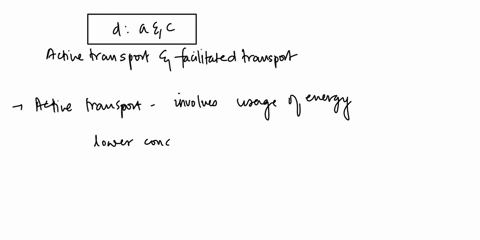 d: a & c
Active transport & facilitated transport
→ Active transport - involves usage of energy
lower conc